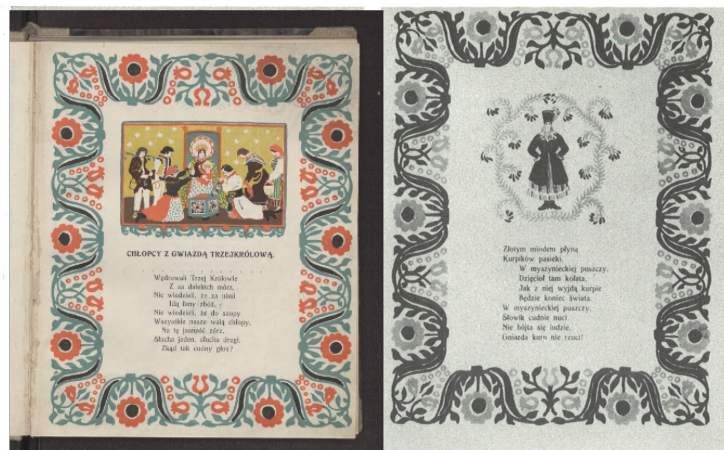 CHŁOPCY Z GWIAZDĄ TRZEJKRÓLOWĄ.
Wędrowali Trzej Królowie
Z za dalekich mórz,
Nie wiedzieli, że za nimi
Idą łany zbóż,
Nie wiedzieli, że do szopy
Wszystkie nasze walą chłopy,
Na tę jasność zórz.
Słucha jeden, słucha drugi,
Zkąd tak cudny głos?
Złotym miodem płyną
Kurpików pasieki.
W myszynieckiej puszczy,
Dzięcioł tam kołata.
Jak z niej wyjdą kurpie
Będzie koniec świata.
W myszynieckiej puszczy,
Słowik cudnie nuci.
Nie bójta się ludzie,
Gniazda kurp nie rzuci!